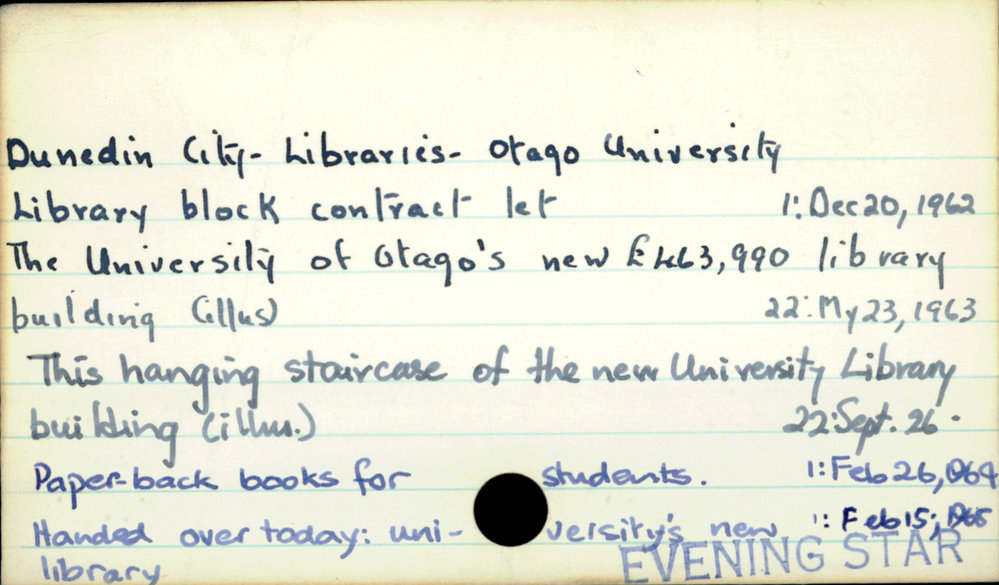 Dunedin City- Libraries- Otago University
Library block contract let 1: Dec 20, 1962
The University of Otago's new £463,990 library
building (illus) 22: My 23, 1963
This hanging staircase of the new University Library
building (illus.) 22: Sept. 26.
Paper-back books for students. 1: Feb 26, 1964
Handed over today: uni-versity's new 1: Feb 15, 1965
library
EVENING STAR